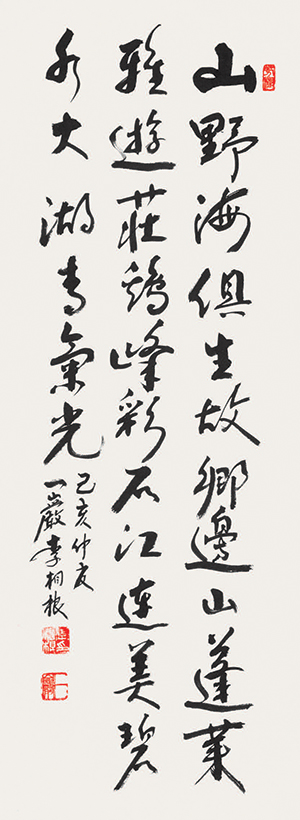 山野海俱生故鄉邊山蓬萊
雅遊莊鷄峰彩石江連美碧
水大湖青氣光
己亥仲夏
一巖李相根